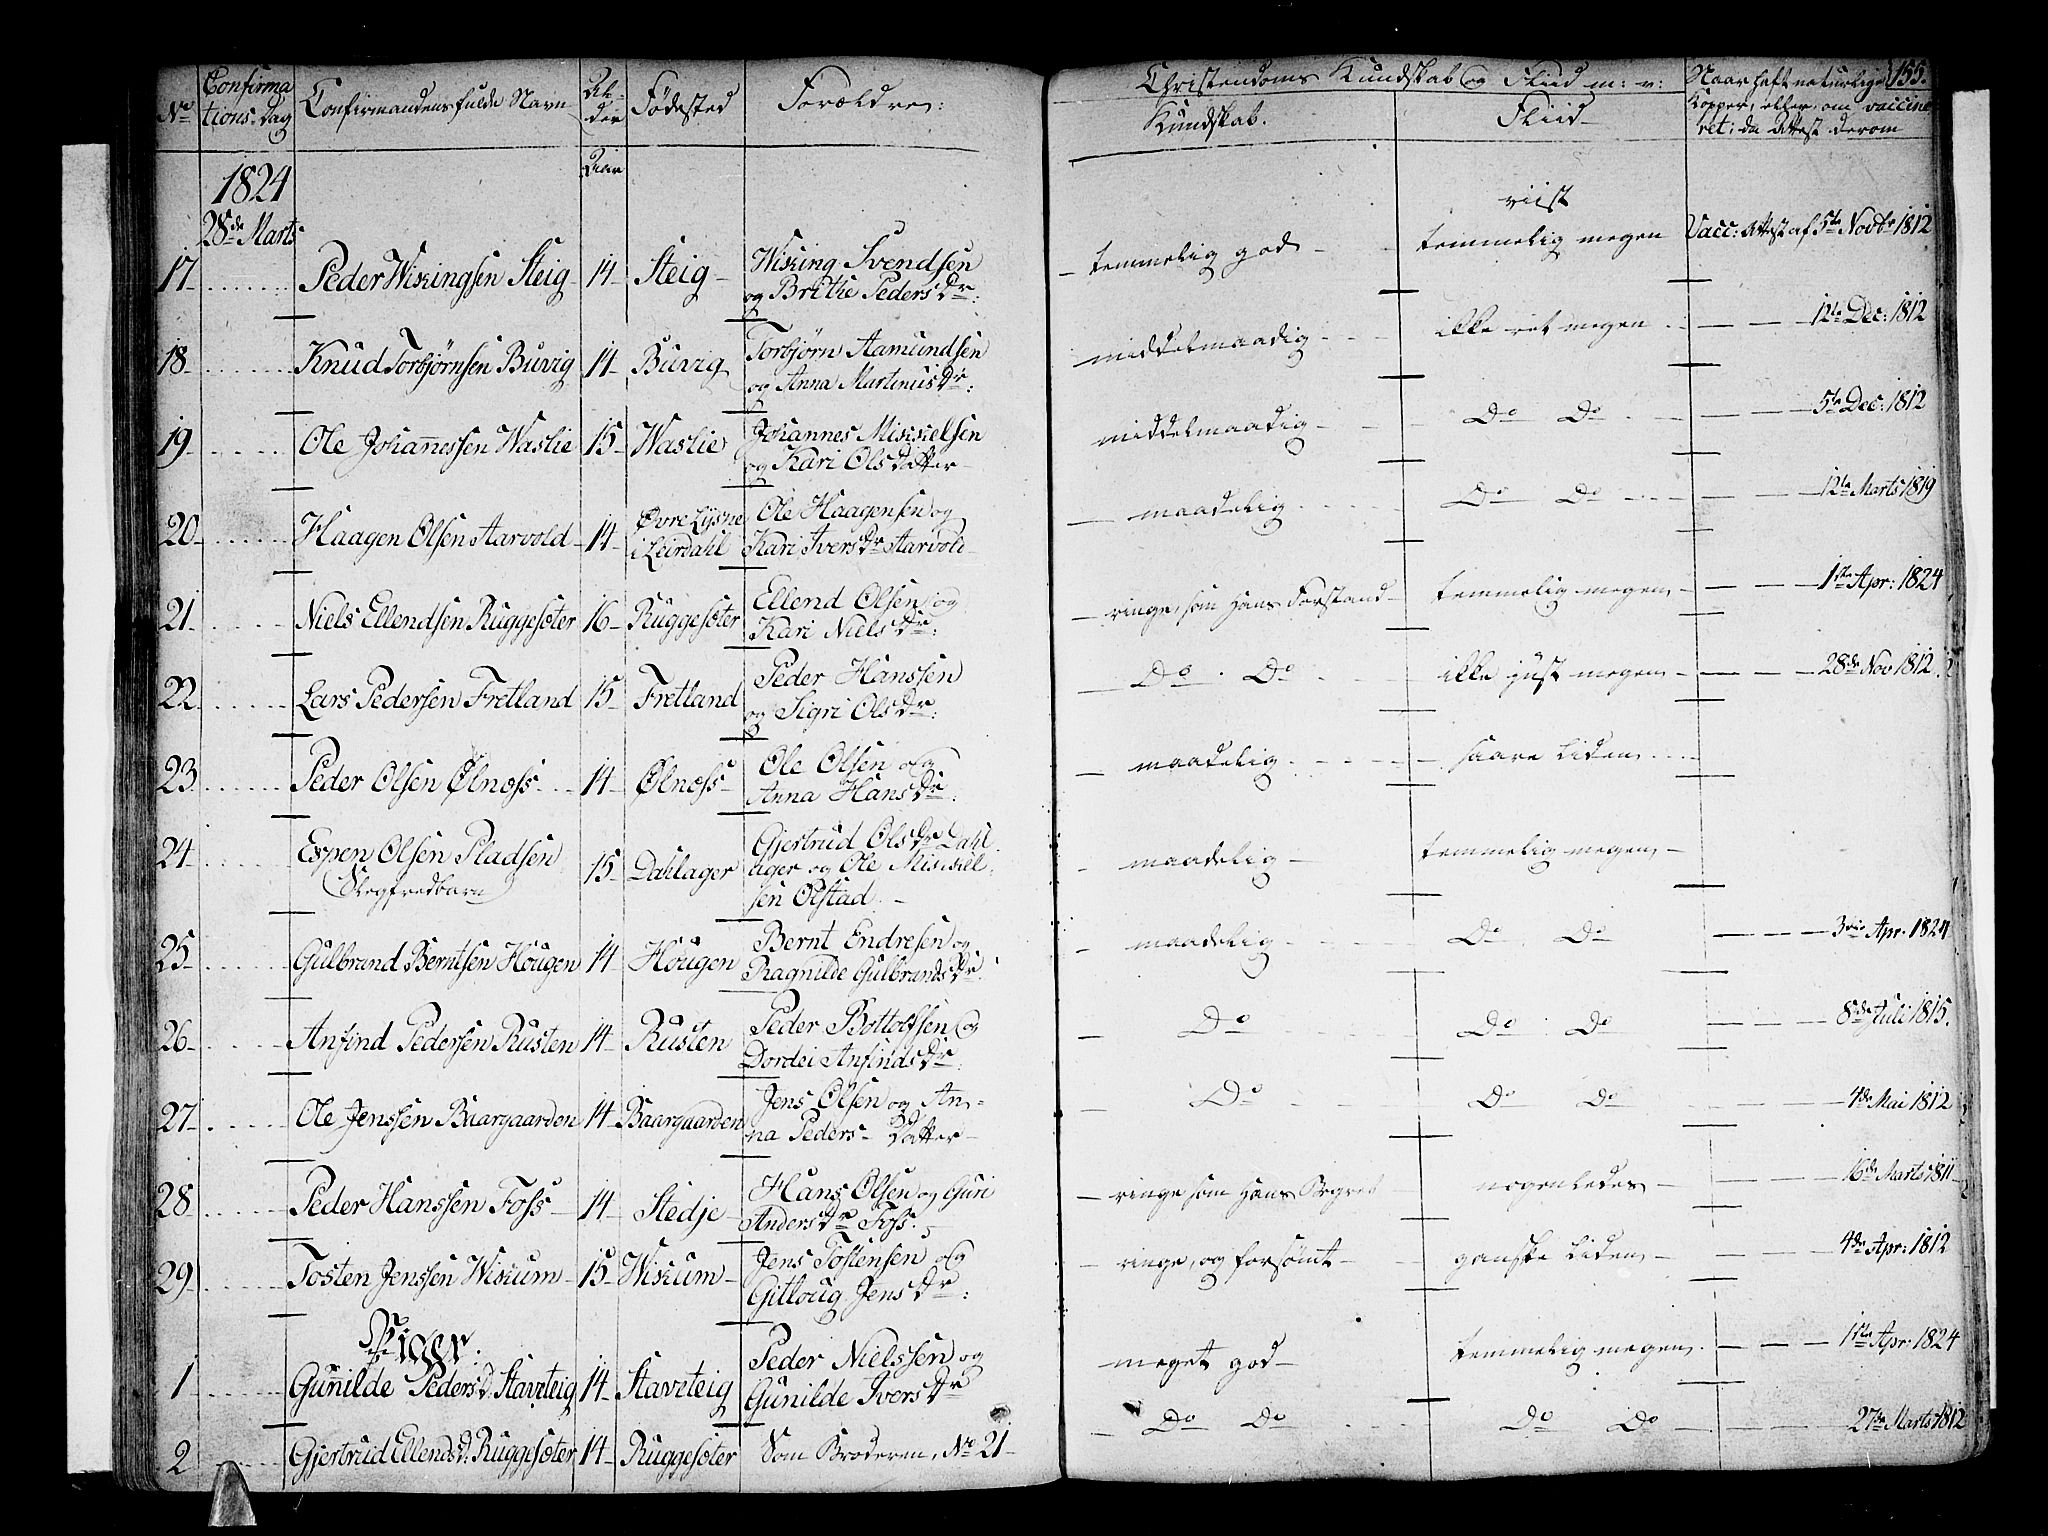 No
Confirma
tions-Dag
Confirmandens fulde Navn
Al-
der
Fødested
Forældre:
Christendoms Kundskab og Fliid m: v:
Kundskab.
Fliid
Naar haft naturlige
Kopper, eller, om vaccine
ret: da Attest derom
155.
Aar
1824
28de Marts
17 Peder Wikingsen Steig 14 Steig
Wiking Svendsen
og Brithe Peders Dr:
temmelig god
viist
temmelig megen
Vacc: Attest af 5te Novbr 1812
18 Knud Torbjørnsen Buvig 14 Buvig
Torbjørn Aamundsen
og Anna Martinus Dr:
middelmaadig
ikke ret megen
12te Dec: 1812
19 Ole Johannessen Waslie 15 Waslie
Johannes Mikkelsen
og Kari Ols Datter
middelmaadig
Do Do
5te Dec: 1812
20 Haagen Olsen Aarvold 14
Øvre Lysne
i Leirdahl
Ole Haagensen og
Kari Ivers Dr Aarvold
maadelig
Do Do
12te Marts 1819
21 Niels Ellendsen Ruggesæter 16 Ruggesæter
Ellend Olsen og
Kari Niels Dr:
ringe, som hans Forstand
temmelig megen
1ste Apr: 1824
22 Lars Pedersen Fretland 15 Fretland
Peder Hanssen
og Sigri Ols Dr:
Do Do
ikke just megen
28de Nov 1812
23 Peder Olsen Ølnæss 14 Ølnæss
Ole Olsen og
Anna Hans Dr:
maadelig
saare liden
24 Espen Olsen Pladsen
(Slegfredbarn)
15 Dahlager
Gjertrud Ols Dr Dahl
ager og Ole Mikkel
sen Ølstad
maadelig
temmelig megen
25 Gulbrand Berntsen Hougen 14 Hougen
Bernt Endresen og
Ragnilde Gulbrands Dr:
maadelig
Do Do
3die Apr. 1824
26 Anfind Pedersen Rusten 14 Rusten
Peder Bottolfsen og
Dordei Anfinds Dr:
Do
Do Do
8de Juli 1815.
27 Ole Jenssen Baargaarden 14 Baargaarden
Jens Olsen og An-
na Peders- Datter
Do
Do Do
4de Mai 1812
28 Peder Hanssen Foss 14 Stedje
Hans Olsen og Guri
Anders Dr Foss.
ringe som hans Begreb
nogenledes
16de Marts 1811
29 Tosten Jenssen Wikum 15 Wikum
Jens Tostensen og
Gitloug Jens Dr:
ringe, og forsømt
ganske liden
4de Apr: 1812
Piger.
1 Gunnilde Peders D. Stavteig 14 Stavteig
Peder Nielssen og
Gunilde Ivers Dr
meget god
temmelig megen
1ste Apr: 1824
2 Gjertrud Ellends D: Ruggesæter 14 Ruggesæter
Som Broderen, No 21
Do Do
Do Do
27de Marts 1812